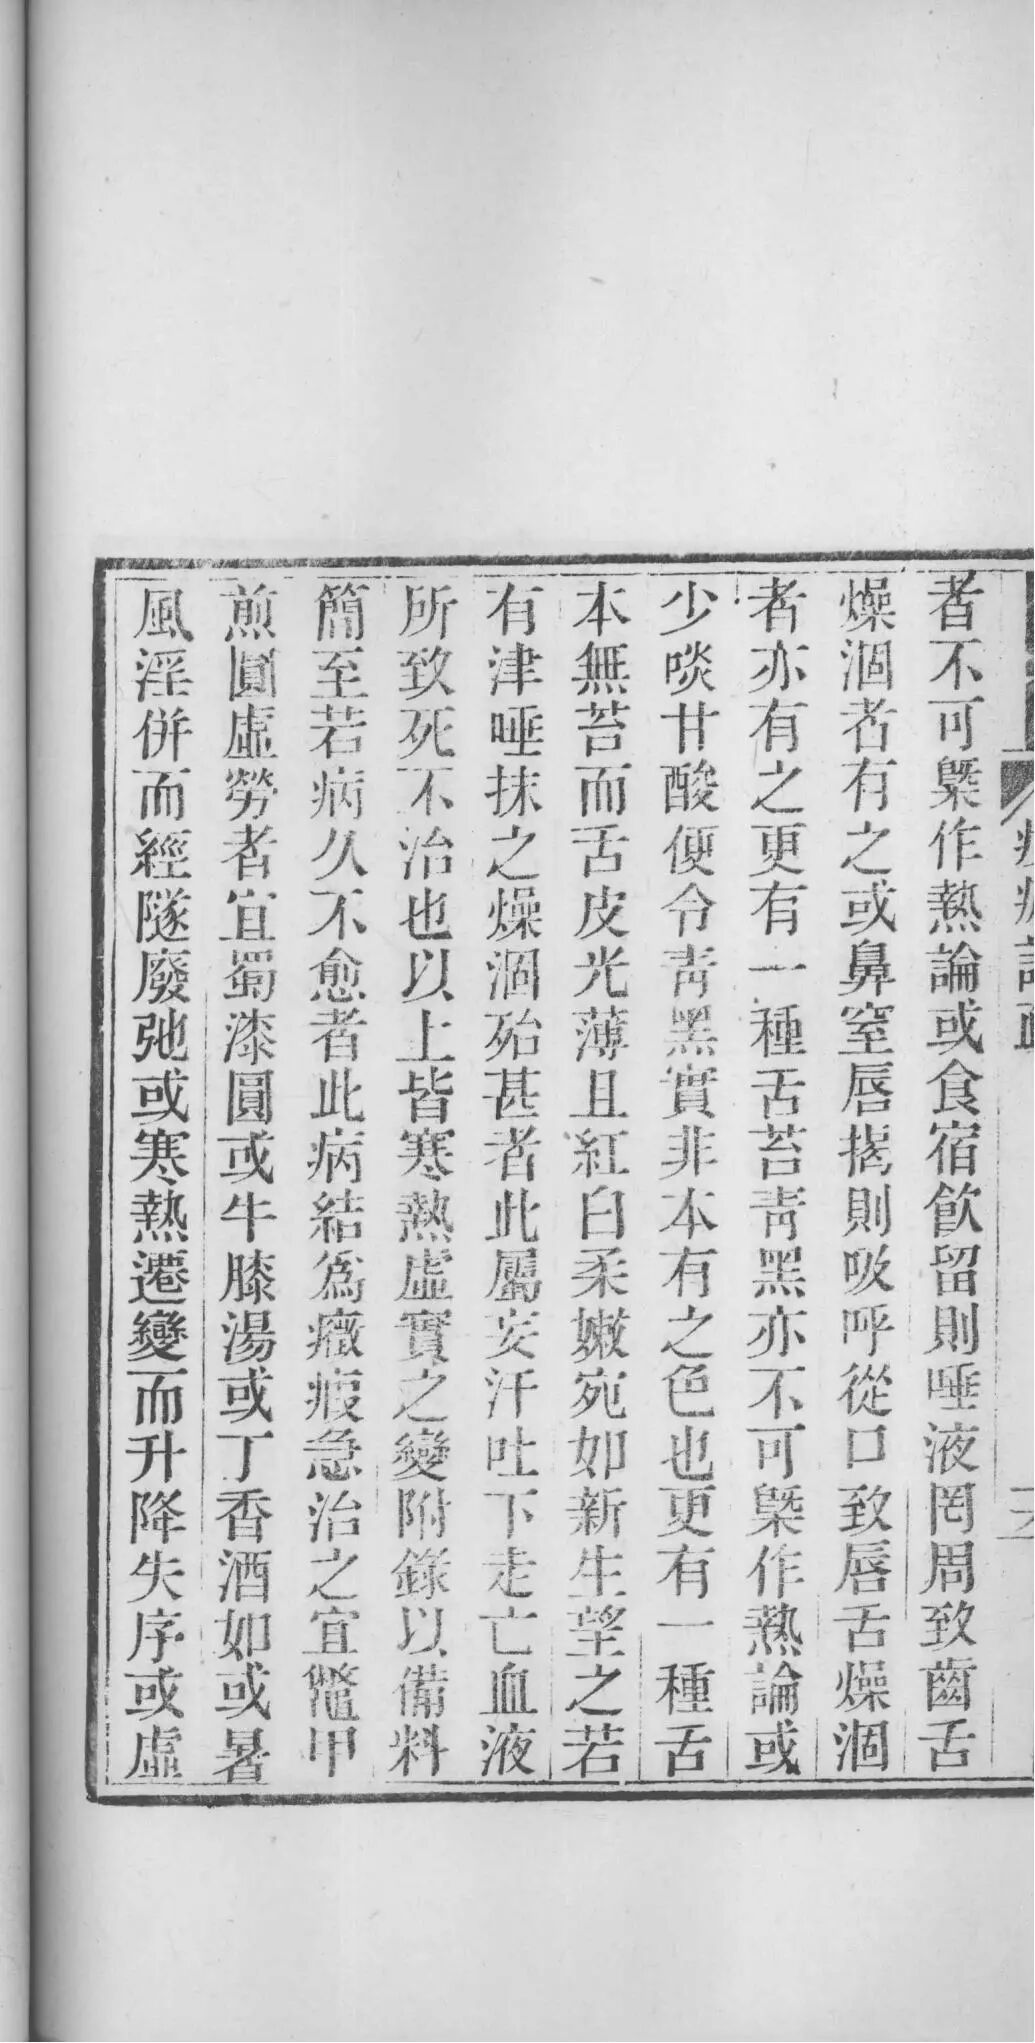 者不可槩作熱論或食宿飮留則唾液罔周致齒舌
燥涸者有之或鼻窒唇揭則吸呼從口致唇舌燥涸
者亦有之更有一種舌苔靑黑亦不可槩作熱論或
少啖甘酸便令靑黑實非本有之色也更有一種舌
本無苔而舌皮光薄且紅白柔嫩宛如新生望之若
有津唾抹之燥涸殆甚者此屬妄汗吐下走亡血液
所致死不治也以上皆寒熱虛實之變附錄以備料
簡至若病久不愈者此病結爲癥瘕急治之宜鼈甲
煎圓虛勞者宜蜀漆圓或牛膝湯或丁香酒如或暑
風淫併而經隧廢弛或寒熱遷變而升降失序或虛